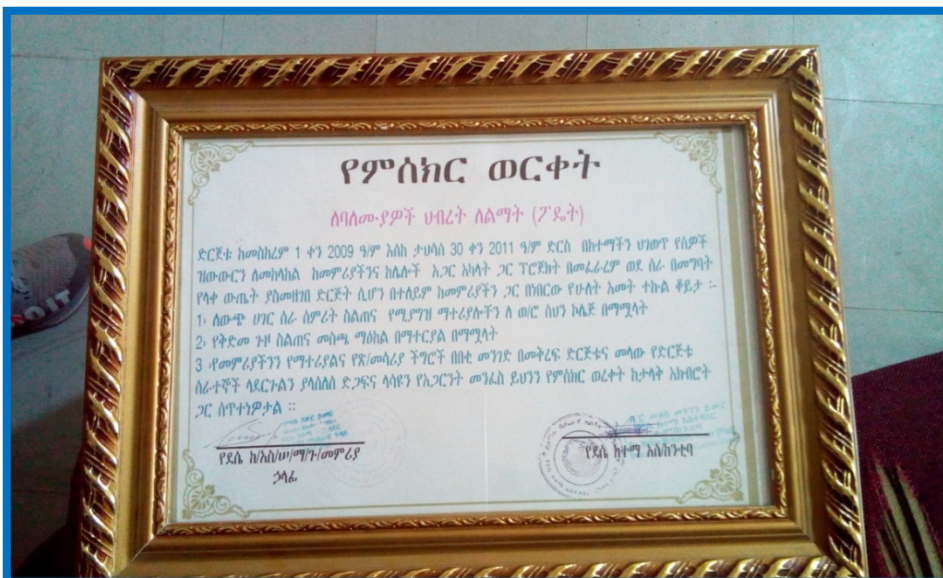 የምስክር ወርቀት
ለባለሙያዎች ህብረት ለልማት (ፖዴት)
ድርጅቱ ከመስከረም 1 ቀን 2009 ዓ/ም እስከ ታህሳስ 30 ቀን 2011 ዓ/ም ድርስ በከተማችን ህገወጥ የሰዎች
ዝውውርን ለመከላከል ከመምሪያችንና ከሌሎች አጋር አካላት ጋር ፕሮጀክት በመፈራረም ወደ ስራ በመግባት
የላቀ ውጤት ያስመዘገበ ድርጅት ሲሆን በተለይም ከመምሪያችን ጋር በነበርው የሁለት አመት ተኩል ቆይታ ፡-
1፡ ለውጭ ሀገር ስራ ስምሪት ስልጠና የሚያግዝ ማተሪያሎችን ለ ወ/ሮ ስህን ኮሌጅ በማሟላት
2፡ የቅድመ ጉዞ ስልጠና መስጫ ማዕከል በማተርያል በማሟላት
3 ፡የመምሪያችንን የማተሪያልና የጽ/መሳሪያ ችግሮች በበቂ መንገድ በመቅረፍ ድርጅቱና መላው የድርጅቱ
ሰራተኞች ላደርጉልን ያላሰለሰ ድጋፍና ላሳዩን የአጋርነት መንፈስ ይህንን የምስክር ወረቀት ከታላቅ አክብሮት
ጋር ሰጥተነዎታል ፡፡
የደሴ ከ/አስ/ሠ/ማ/ጉ/መምሪያ
ኃላፊ
የደሴ ከተማ አስ/ከንቲባ